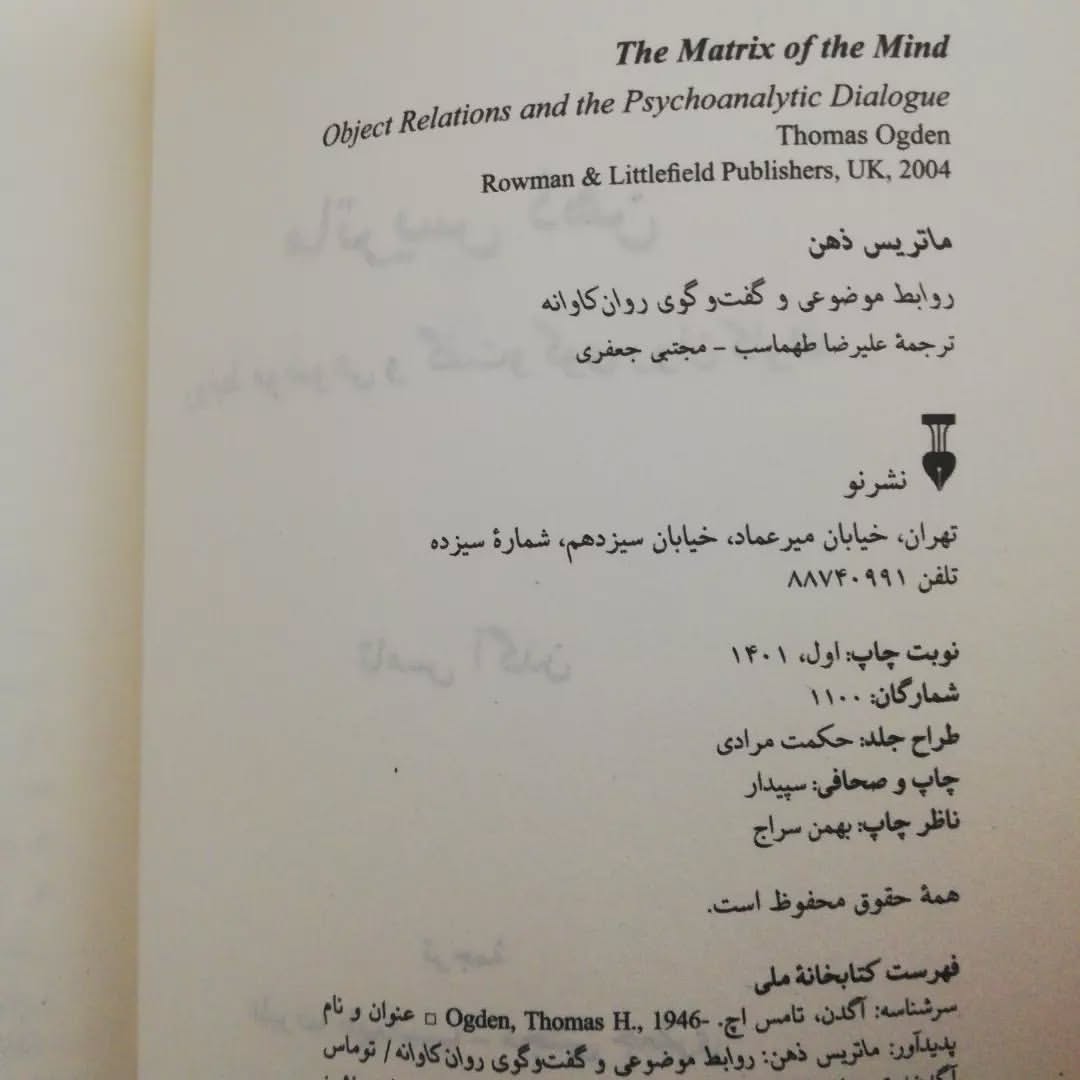 The Matrix of the Mind
Object Relations and the Psychoanalytic Dialogue
Thomas Ogden
Rowman & Littlefield Publishers, UK, 2004
ماتریس ذهن
روابط موضوعی و گفت‌وگوی روان‌کاوانه
ترجمهٔ علیرضا طهماسب – مجتبی جعفری
نشرنو
تهران، خیابان میرعماد، خیابان سیزدهم، شمارهٔ سیزده
تلفن ۸۸۷۴۰۹۹۱
نوبت چاپ: اول، ۱۴۰۱
شمارگان: ۱۱۰۰
طراح جلد: حکمت مرادی
چاپ و صحافی: سپیدار
ناظر چاپ: بهمن سراج
همهٔ حقوق محفوظ است.
فهرست کتابخانهٔ ملی
سرشناسه: آگدن، تامس اچ. -Ogden, Thomas H., 1946 □ عنوان و نام
پدیدآور: ماتریس ذهن: روابط موضوعی و گفت‌وگوی روان‌کاوانه/ توماس